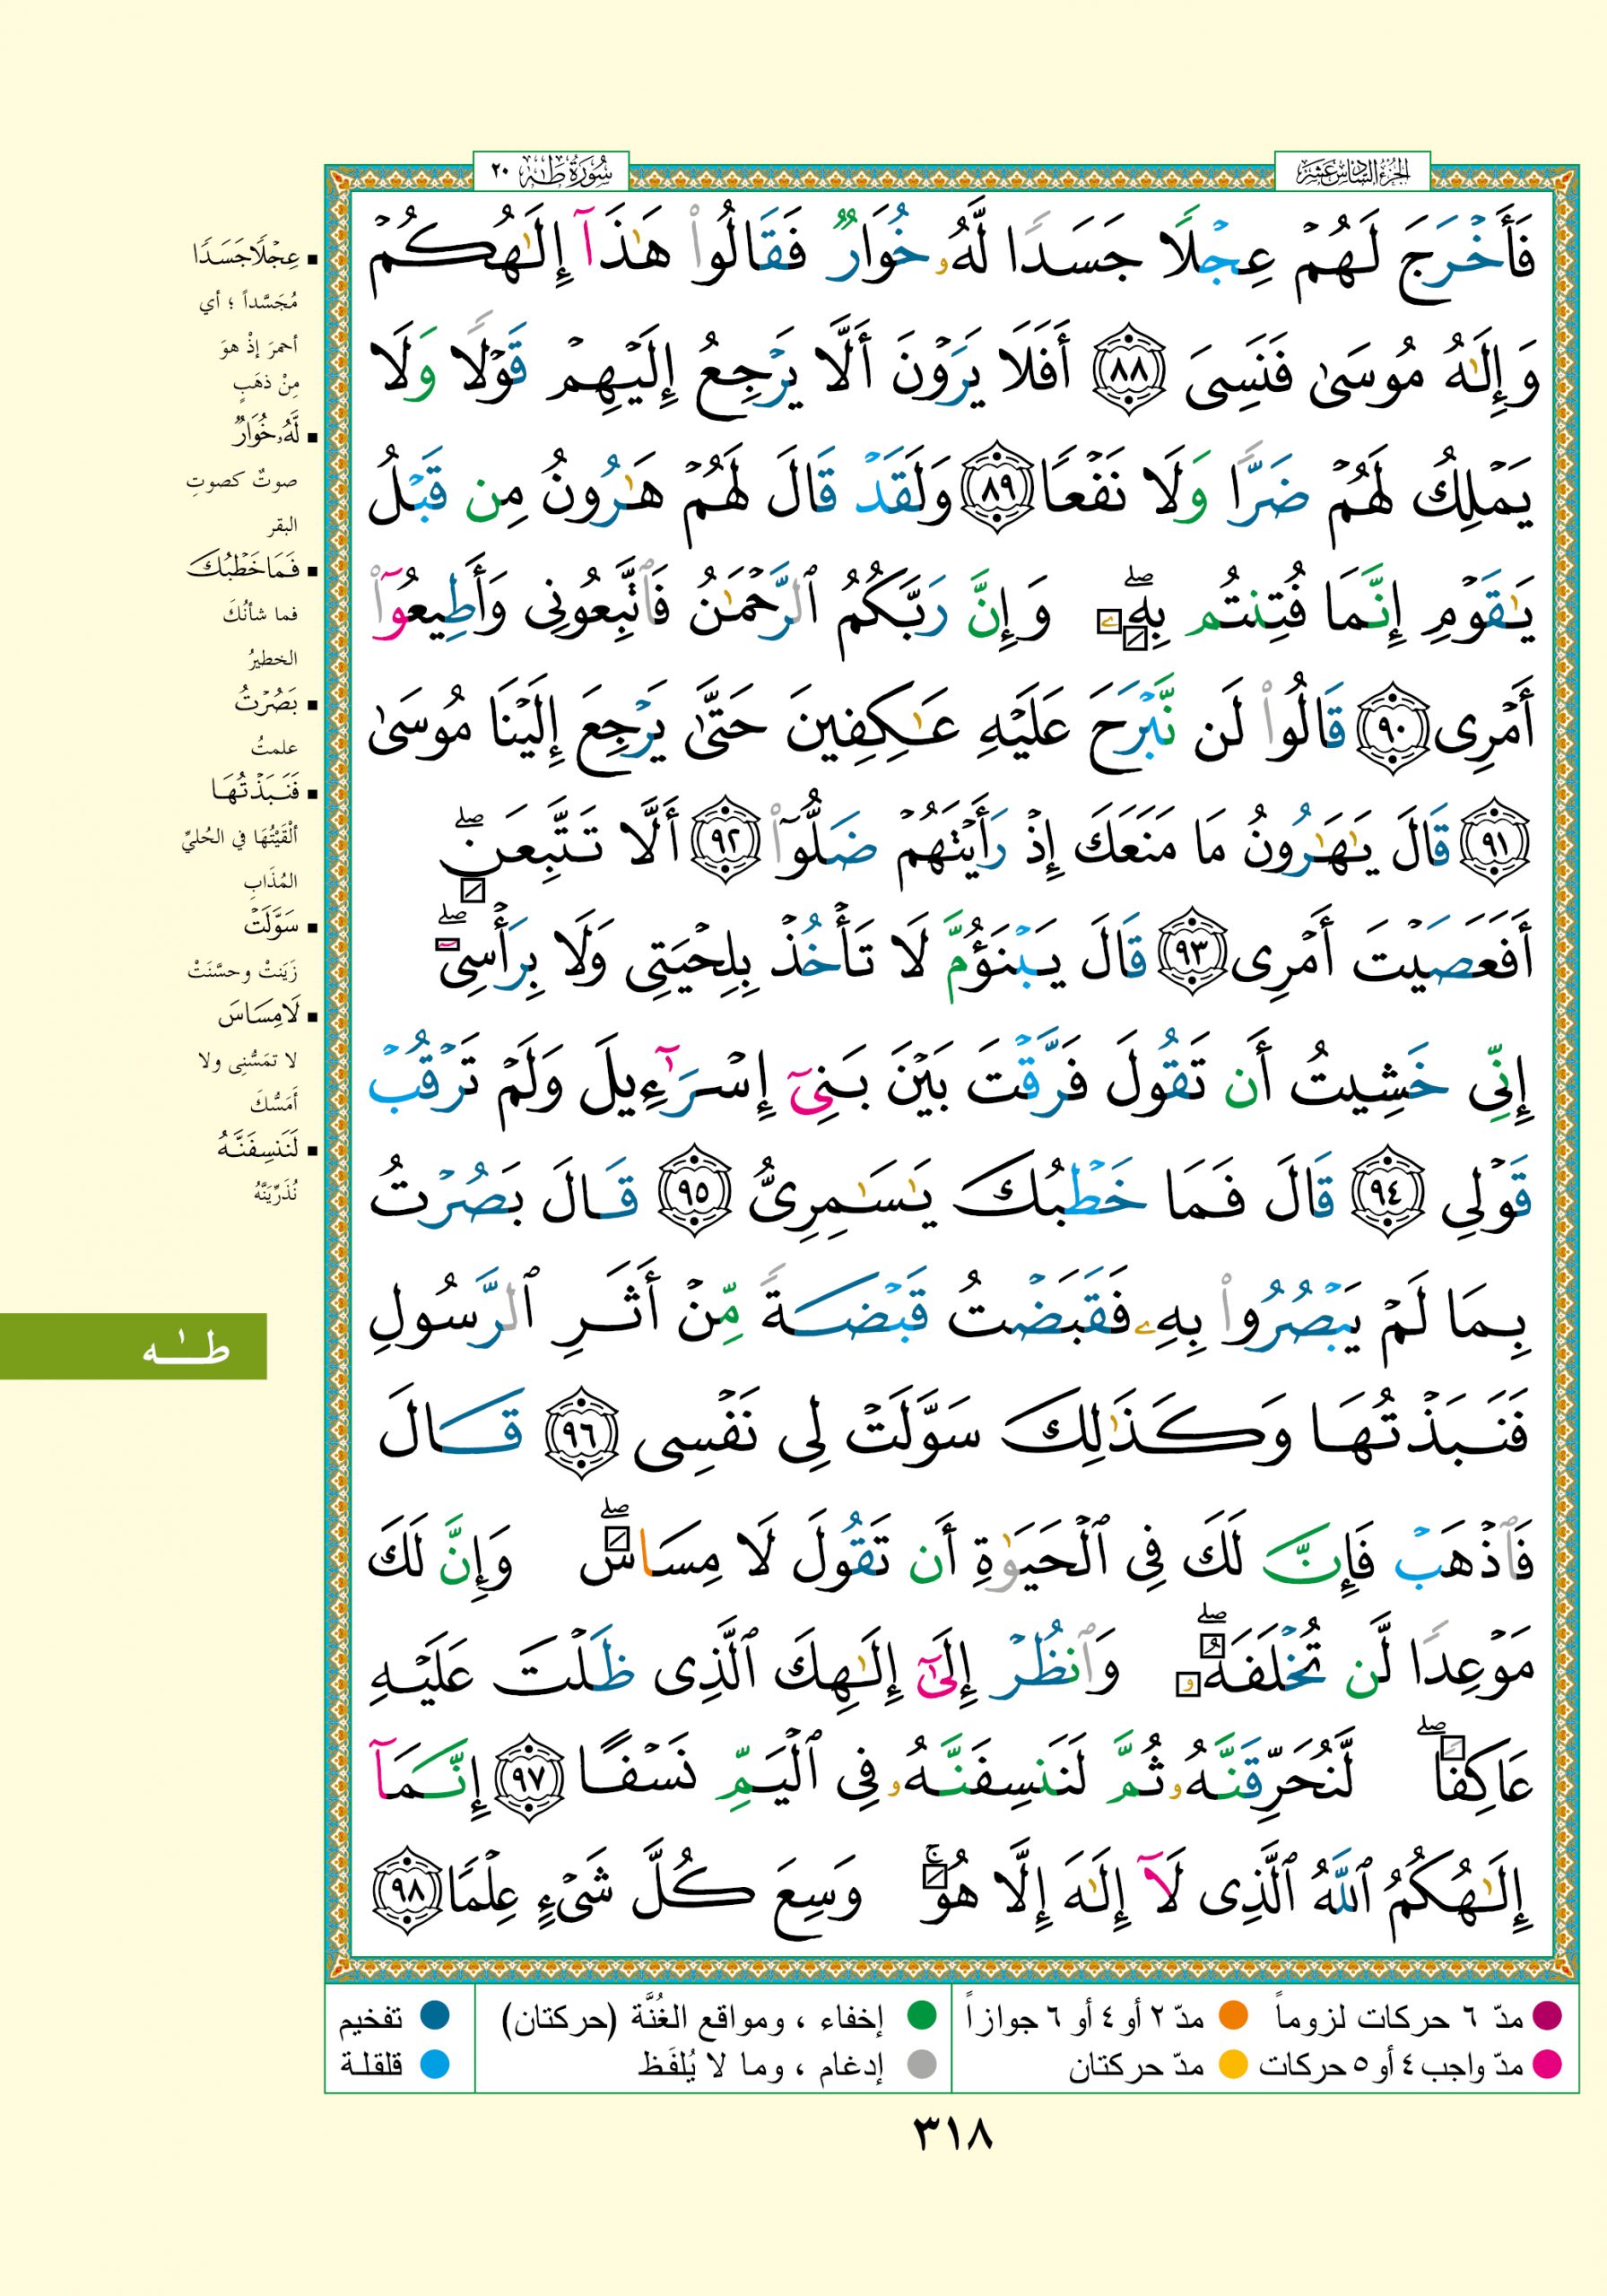 الجزء السادس عشر
سورة طه ٢٠
فَأَخْرَجَ لَهُمْ عِجْلًا جَسَدًا لَّهُۥ خُوَارٌ فَقَالُوا۟ هَـٰذَآ إِلَـٰهُكُمْ
وَإِلَـٰهُ مُوسَىٰ فَنَسِىَ ٨٨ أَفَلَا يَرَوْنَ أَلَّا يَرْجِعُ إِلَيْهِمْ قَوْلًا وَلَا
يَمْلِكُ لَهُمْ ضَرًّا وَلَا نَفْعًا ٨٩ وَلَقَدْ قَالَ لَهُمْ هَـٰرُونُ مِن قَبْلُ
يَـٰقَوْمِ إِنَّمَا فُتِنتُم بِهِۦ ۖ وَإِنَّ رَبَّكُمُ ٱلرَّحْمَـٰنُ فَٱتَّبِعُونِى وَأَطِيعُوٓا۟
أَمْرِى ٩٠ قَالُوا۟ لَن نَّبْرَحَ عَلَيْهِ عَـٰكِفِينَ حَتَّىٰ يَرْجِعَ إِلَيْنَا مُوسَىٰ
٩١ قَالَ يَـٰهَـٰرُونُ مَا مَنَعَكَ إِذْ رَأَيْتَهُمْ ضَلُّوٓا۟ ٩٢ أَلَّا تَتَّبِعَنِ ۖ
أَفَعَصَيْتَ أَمْرِى ٩٣ قَالَ يَبْنَؤُمَّ لَا تَأْخُذْ بِلِحْيَتِى وَلَا بِرَأْسِىٓ ۖ
إِنِّى خَشِيتُ أَن تَقُولَ فَرَّقْتَ بَيْنَ بَنِىٓ إِسْرَٰٓءِيلَ وَلَمْ تَرْقُبْ
قَوْلِى ٩٤ قَالَ فَمَا خَطْبُكَ يَـٰسَـٰمِرِىُّ ٩٥ قَالَ بَصُرْتُ
بِمَا لَمْ يَبْصُرُوا۟ بِهِۦ فَقَبَضْتُ قَبْضَةً مِّنْ أَثَرِ ٱلرَّسُولِ
فَنَبَذْتُهَا وَكَذَٰلِكَ سَوَّلَتْ لِى نَفْسِى ٩٦ قَالَ
فَٱذْهَبْ فَإِنَّ لَكَ فِى ٱلْحَيَوٰةِ أَن تَقُولَ لَا مِسَاسَ ۖ وَإِنَّ لَكَ
مَوْعِدًا لَّن تُخْلَفَهُۥ ۖ وَٱنظُرْ إِلَىٰٓ إِلَـٰهِكَ ٱلَّذِى ظَلْتَ عَلَيْهِ
عَاكِفًا ۖ لَّنُحَرِّقَنَّهُۥ ثُمَّ لَنَنسِفَنَّهُۥ فِى ٱلْيَمِّ نَسْفًا ٩٧ إِنَّمَآ
إِلَـٰهُكُمُ ٱللَّهُ ٱلَّذِى لَآ إِلَـٰهَ إِلَّا هُوَ ۚ وَسِعَ كُلَّ شَىْءٍ عِلْمًا ٩٨
عِجْلًا جَسَدًا
مُجَسَّداً ؛ أي
أحمرَ إذْ هوَ
مِنْ ذهَبٍ
لَّهُۥ خُوَارٌ
صوتٌ كصوتِ
البقر
فَمَا خَطْبُكَ
فما شأنُكَ
الخطيرُ
بَصُرْتُ
علمتُ
فَنَبَذْتُهَا
ألْقَيْتُهَا في الحُليِّ
المُذَابِ
سَوَّلَتْ
زَيَنَتْ وحسَّنَتْ
لَا مِسَاسَ
لا تمَسُّنِى ولا
أَمَسُّكَ
لَنَنسِفَنَّهُ
نُذَرِّيَنَّهُ
طـٰه
مدّ ٦ حركات لزوماً
مدّ ٢ أو ٤ أو ٦ جوازاً
إخفاء ، ومواقع الغُنَّة (حركتان)
تفخيم
مدّ واجب ٤ أو ٥ حركات
مدّ حركتان
إدغام ، وما لا يُلفَظ
قلقلة
٣١٨